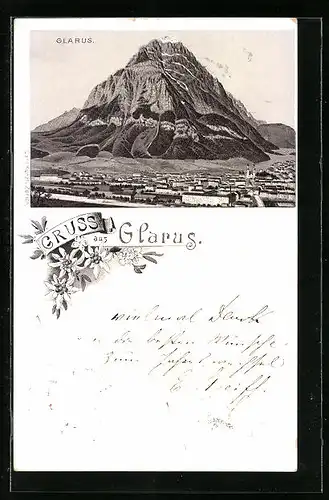 GLARUS.
GRUSS aus Glarus.
vielmal Dank
u die besten Wünsche
zum Jahreswechsel